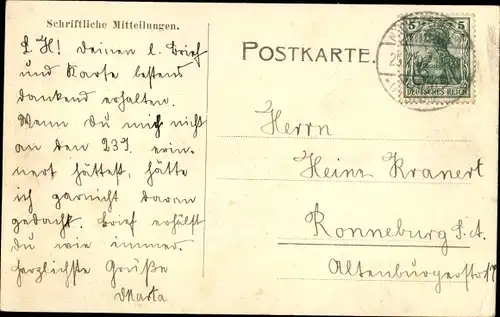 Schriftliche Mitteilungen.
L. H! Deinen l. Brief
und Karte bestens
dankend erhalten.
Wenn Du mich nicht
an den 23. erin-
nert hättest, hätte
ich garnicht daran
gedacht. Brief erhälst
Du wie immer.
Herzlichste Grüße
Marta
POSTKARTE.
5 5
DEUTSCHES REICH
Herrn
Heinz Kranert
Ronneburg S. A.
Altenburgerstr.